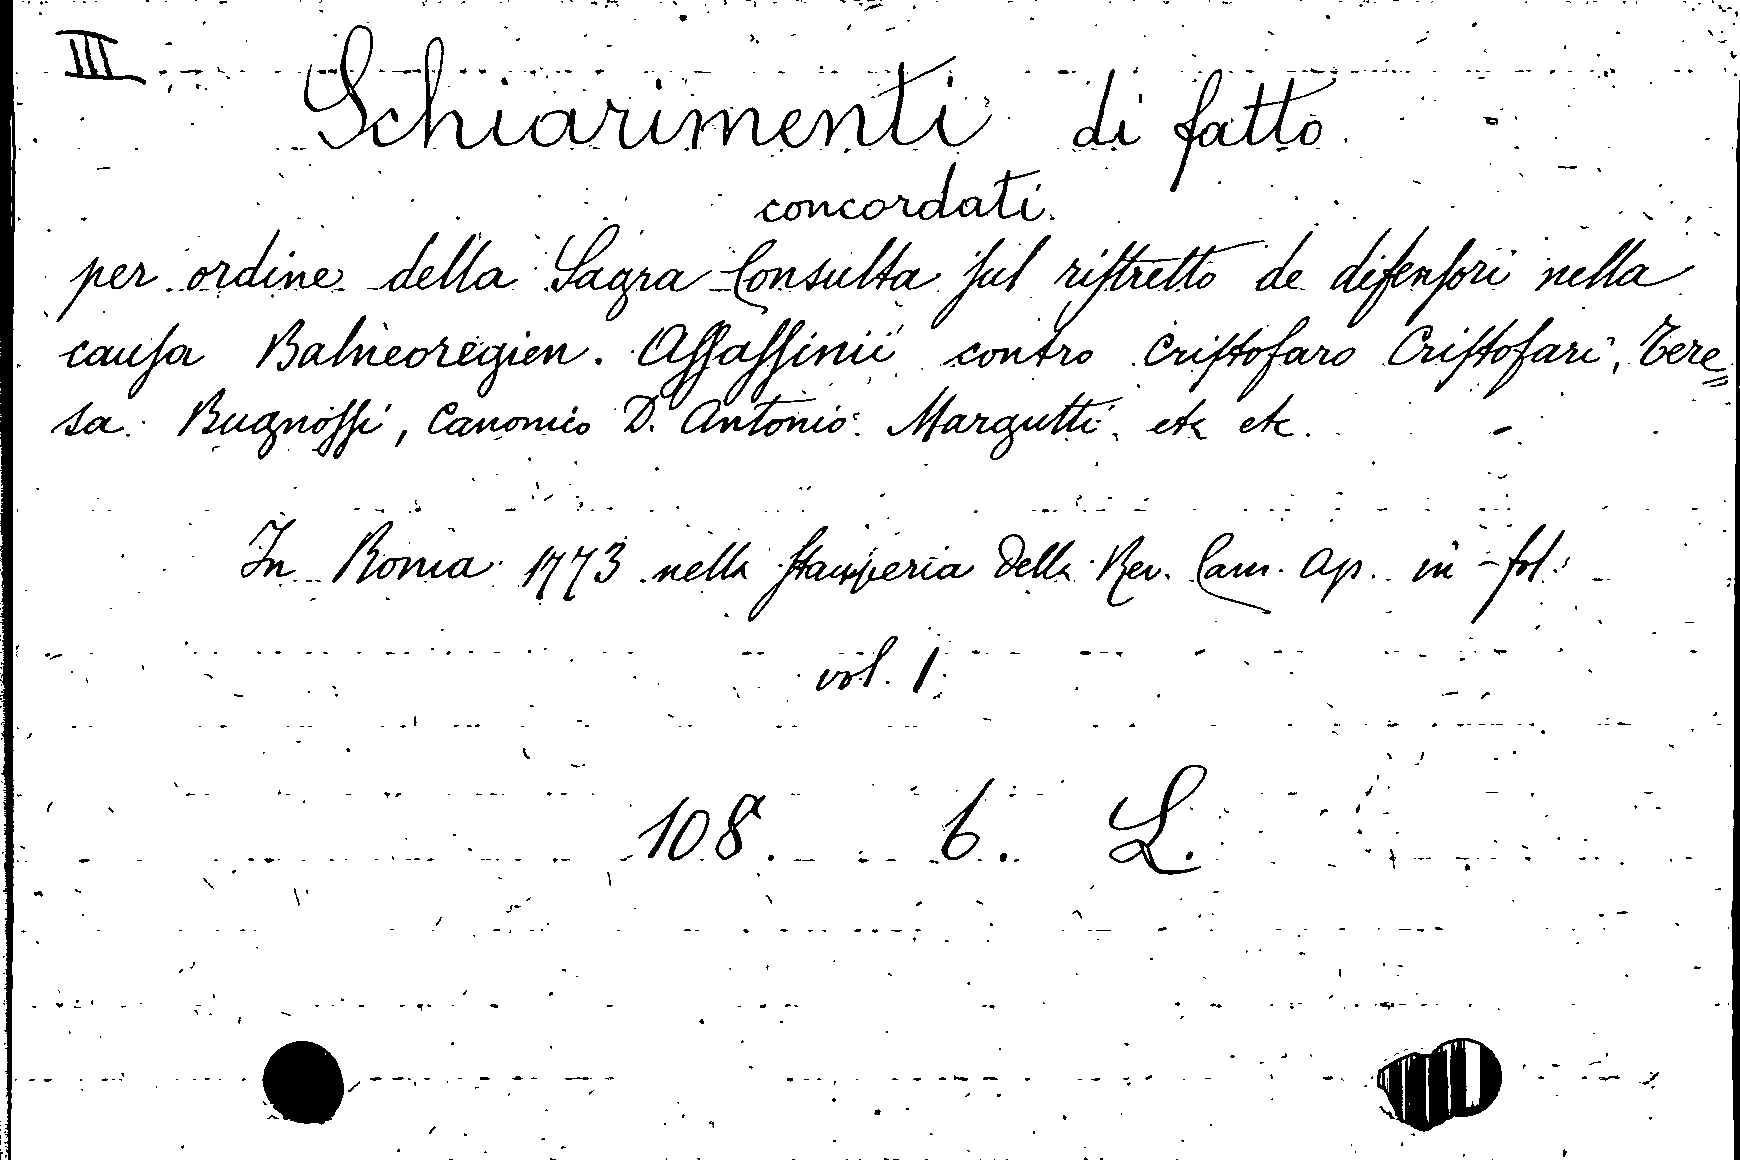 III
Schiarimenti di fatto
concordati.
per ordine della Sagra Consulta ſul riſtretto de difenſori nella
cauſa Balneoregien. Aſſaſſinii contro Criſtofaro Criſtofari, Tere=
sa Bugnoſſi, Canonico D. Antonio Margutti etc etc.
In Roma 1773 nella ſtamperia della Rev. Cam. Ap. in-fol.
vol. 1.
108. 6. L.